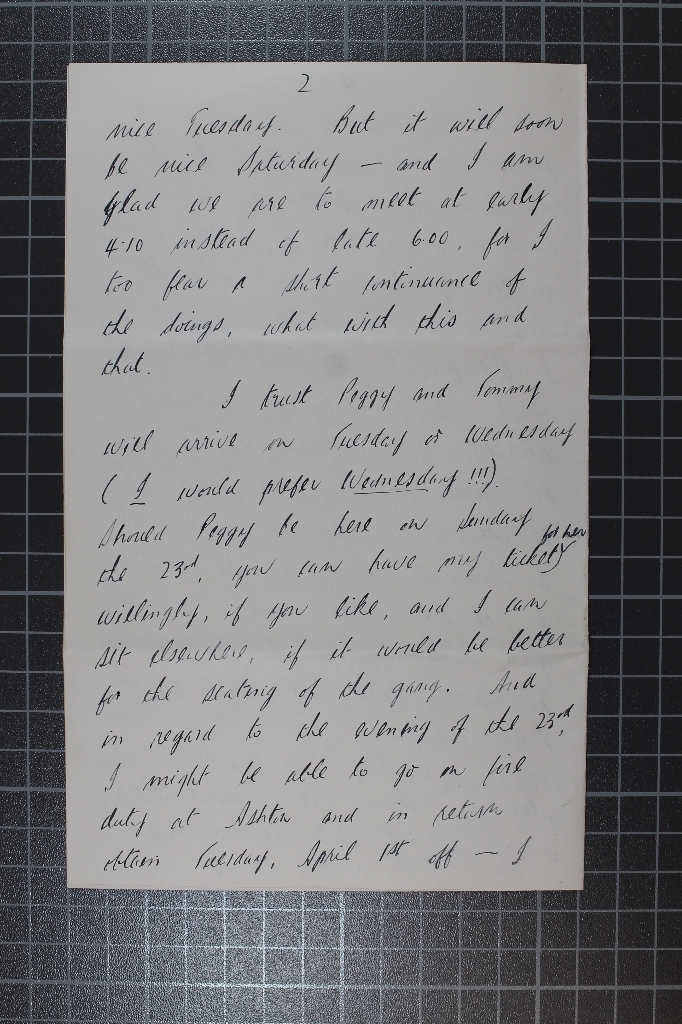 2
nice Tuesday. But it will soon
be nice Saturday — and I am
glad we are to meet at early
4.10 instead of late 6.00, for I
too fear a short continuance of
the doings, what with this and
that.
I trust Peggy and Tommy
will arrive on Tuesday or Wednesday
(I would prefer Wednesday!!!).
Should Peggy be here on Sunday
the 23rd, you can have my ticket for her
willingly, if you like, and I can
sit elsewhere, if it would be better
for the seating of the gang. And
in regard to the evening of the 23rd,
I might be able to go on fire
duty at Ashton and in return
obtain Tuesday, April 1st off — I